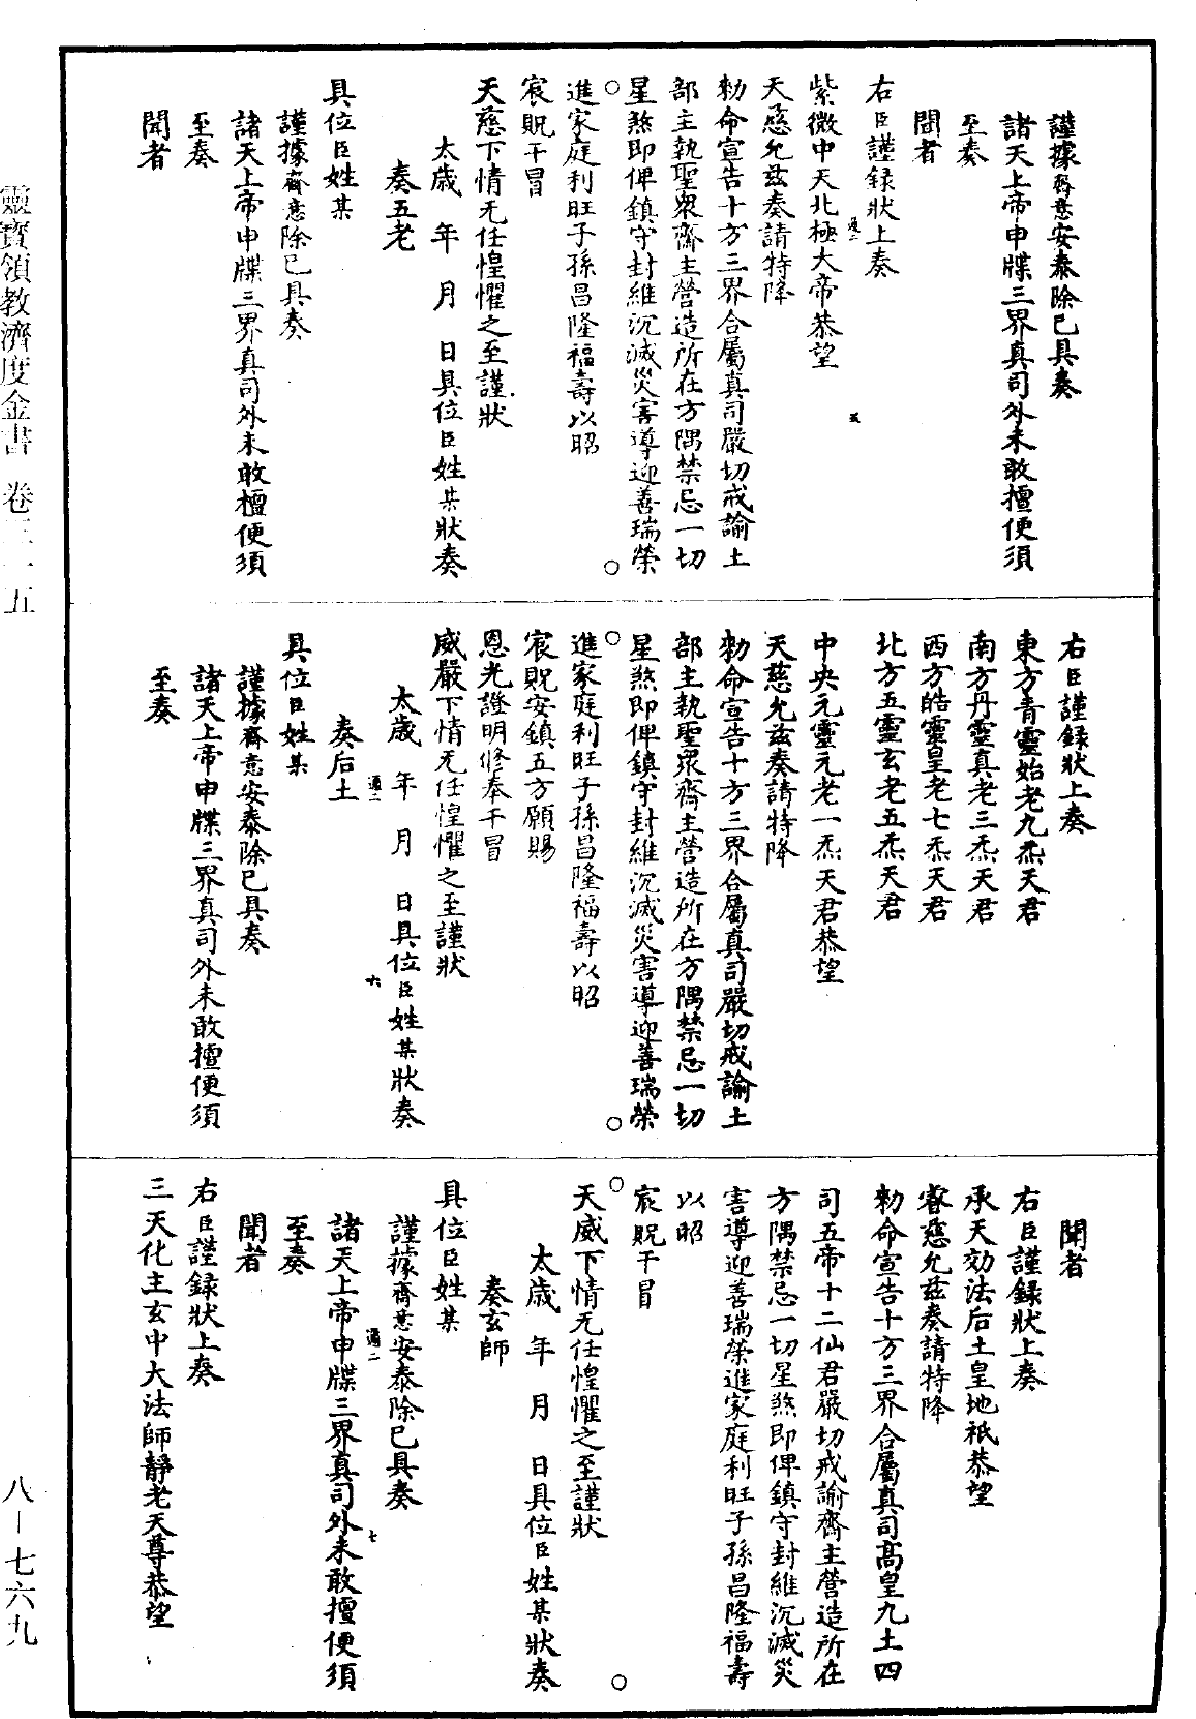 謹據齋意安泰除已具奏
諸天上帝申牒三界真司外未敢擅便須
至奏
聞者
右臣謹録狀上奏
紫微中天北極大帝恭望
天慈允兹奏請特降
勑命宣告十方三界合屬真司嚴切戒諭土
部主執聖衆齋主營造所在方隅禁忌一切
星煞即俾鎮守封維沉滅災害導迎善瑞榮
進家庭利旺子孫昌隆福壽以昭
宸貺干冒
天慈下情无任惶懼之至謹狀
太歲 年 月 日具位臣姓某狀奏
奏五老
具位臣姓某
謹據齋意除已具奏
諸天上帝申牒三界真司外未敢擅便須
至奏
聞者
右臣謹録狀上奏
東方青靈始老九炁天君
南方丹靈真老三炁天君
西方皓靈皇老七炁天君
北方五靈玄老五炁天君
中央元靈元老一炁天君恭望
天慈允兹奏請特降
勑命宣告十方三界合屬真司嚴切戒諭土
部主執聖衆齋主營造所在方隅禁忌一切
星煞即俾鎮守封維沉滅災害導迎善瑞榮
進家庭利旺子孫昌隆福壽以昭
宸貺安鎮五方願賜
恩光證明修奉干冒
威嚴下情无任惶懼之至謹狀
太歲 年 月 日具位臣姓某狀奏
六
奏后土
具位臣姓某
謹據齋意安泰除已具奏
諸天上帝申牒三界真司外未敢擅便須
至奏
聞者
右臣謹録狀上奏
承天効法后土皇地祇恭望
睿慈允兹奏請特降
勑命宣告十方三界合屬真司高皇九土四
司五帝十二仙君嚴切戒諭齋主營造所在
方隅禁忌一切星煞即俾鎮守封維沉滅災
害導迎善瑞榮進家庭利旺子孫昌隆福壽
以昭
宸貺干冒
天威下情无任惶懼之至謹狀
太歲 年 月 日具位臣姓某狀奏
奏玄師
具位臣姓某
謹據齋意安泰除已具奏
七
諸天上帝申牒三界真司外未敢擅便須
至奏
聞者
右臣謹録狀上奏
三天化主玄中大法師靜老天尊恭望
靈寶領教濟度金書 卷三一五
八—七六九